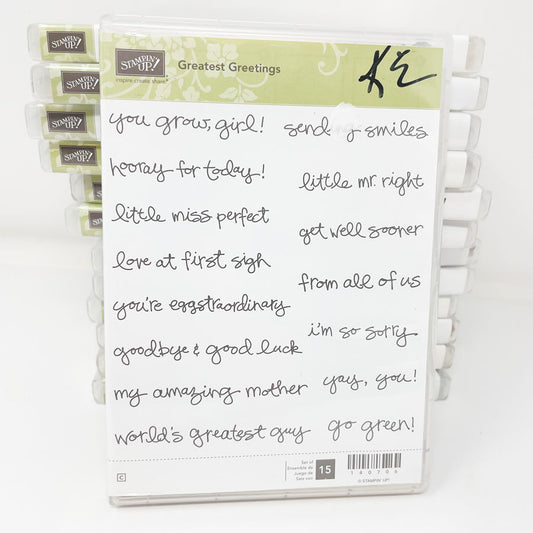 STAMPIN' UP!
inspire.create.share
Greatest Greetings
KE
you grow, girl!
send smiles
hooray for today!
little mr. right
little miss perfect
get well sooner
love at first sigh
from all of us
you're eggstraordinary
i'm so sorry
goodbye & good luck
yay, you!
my amazing mother
go green!
world's greatest guy
Set of
Ensemble de
Juego de
Satz von
15
140705
© STAMPIN' UP!
C
STAMPIN' UP!
STAMPIN' UP!
STAMPIN' UP!
STAMPIN' UP!
STAMPIN' UP!
STAMPIN' UP!